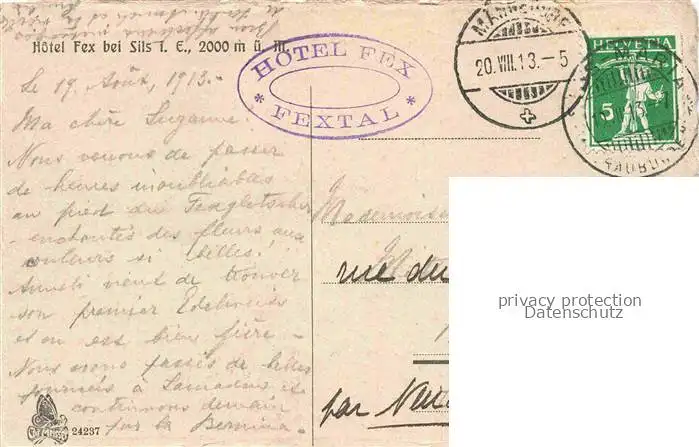 Hôtel Fex bei Sils i. E., 2000 m ü. M.
HÔTEL FEX
* FEXTAL *
20.VIII.13.-5
HELVETIA
5
Le 19 Août, 1913.-
Ma chère Suzanne.
Nous venons de passer
de heures inoubliables
au pied du Fexgletscher
enchantés des fleurs aux
couleurs si belles!
vient de trouver
son premier Edelweiss
et on est bien fière -
Nous avons passés de belles
journées à Samaden et
continuons demain
par la Bernina.-
Mademoiselle
rue du
par
privacy protection
Datenschutz
24237